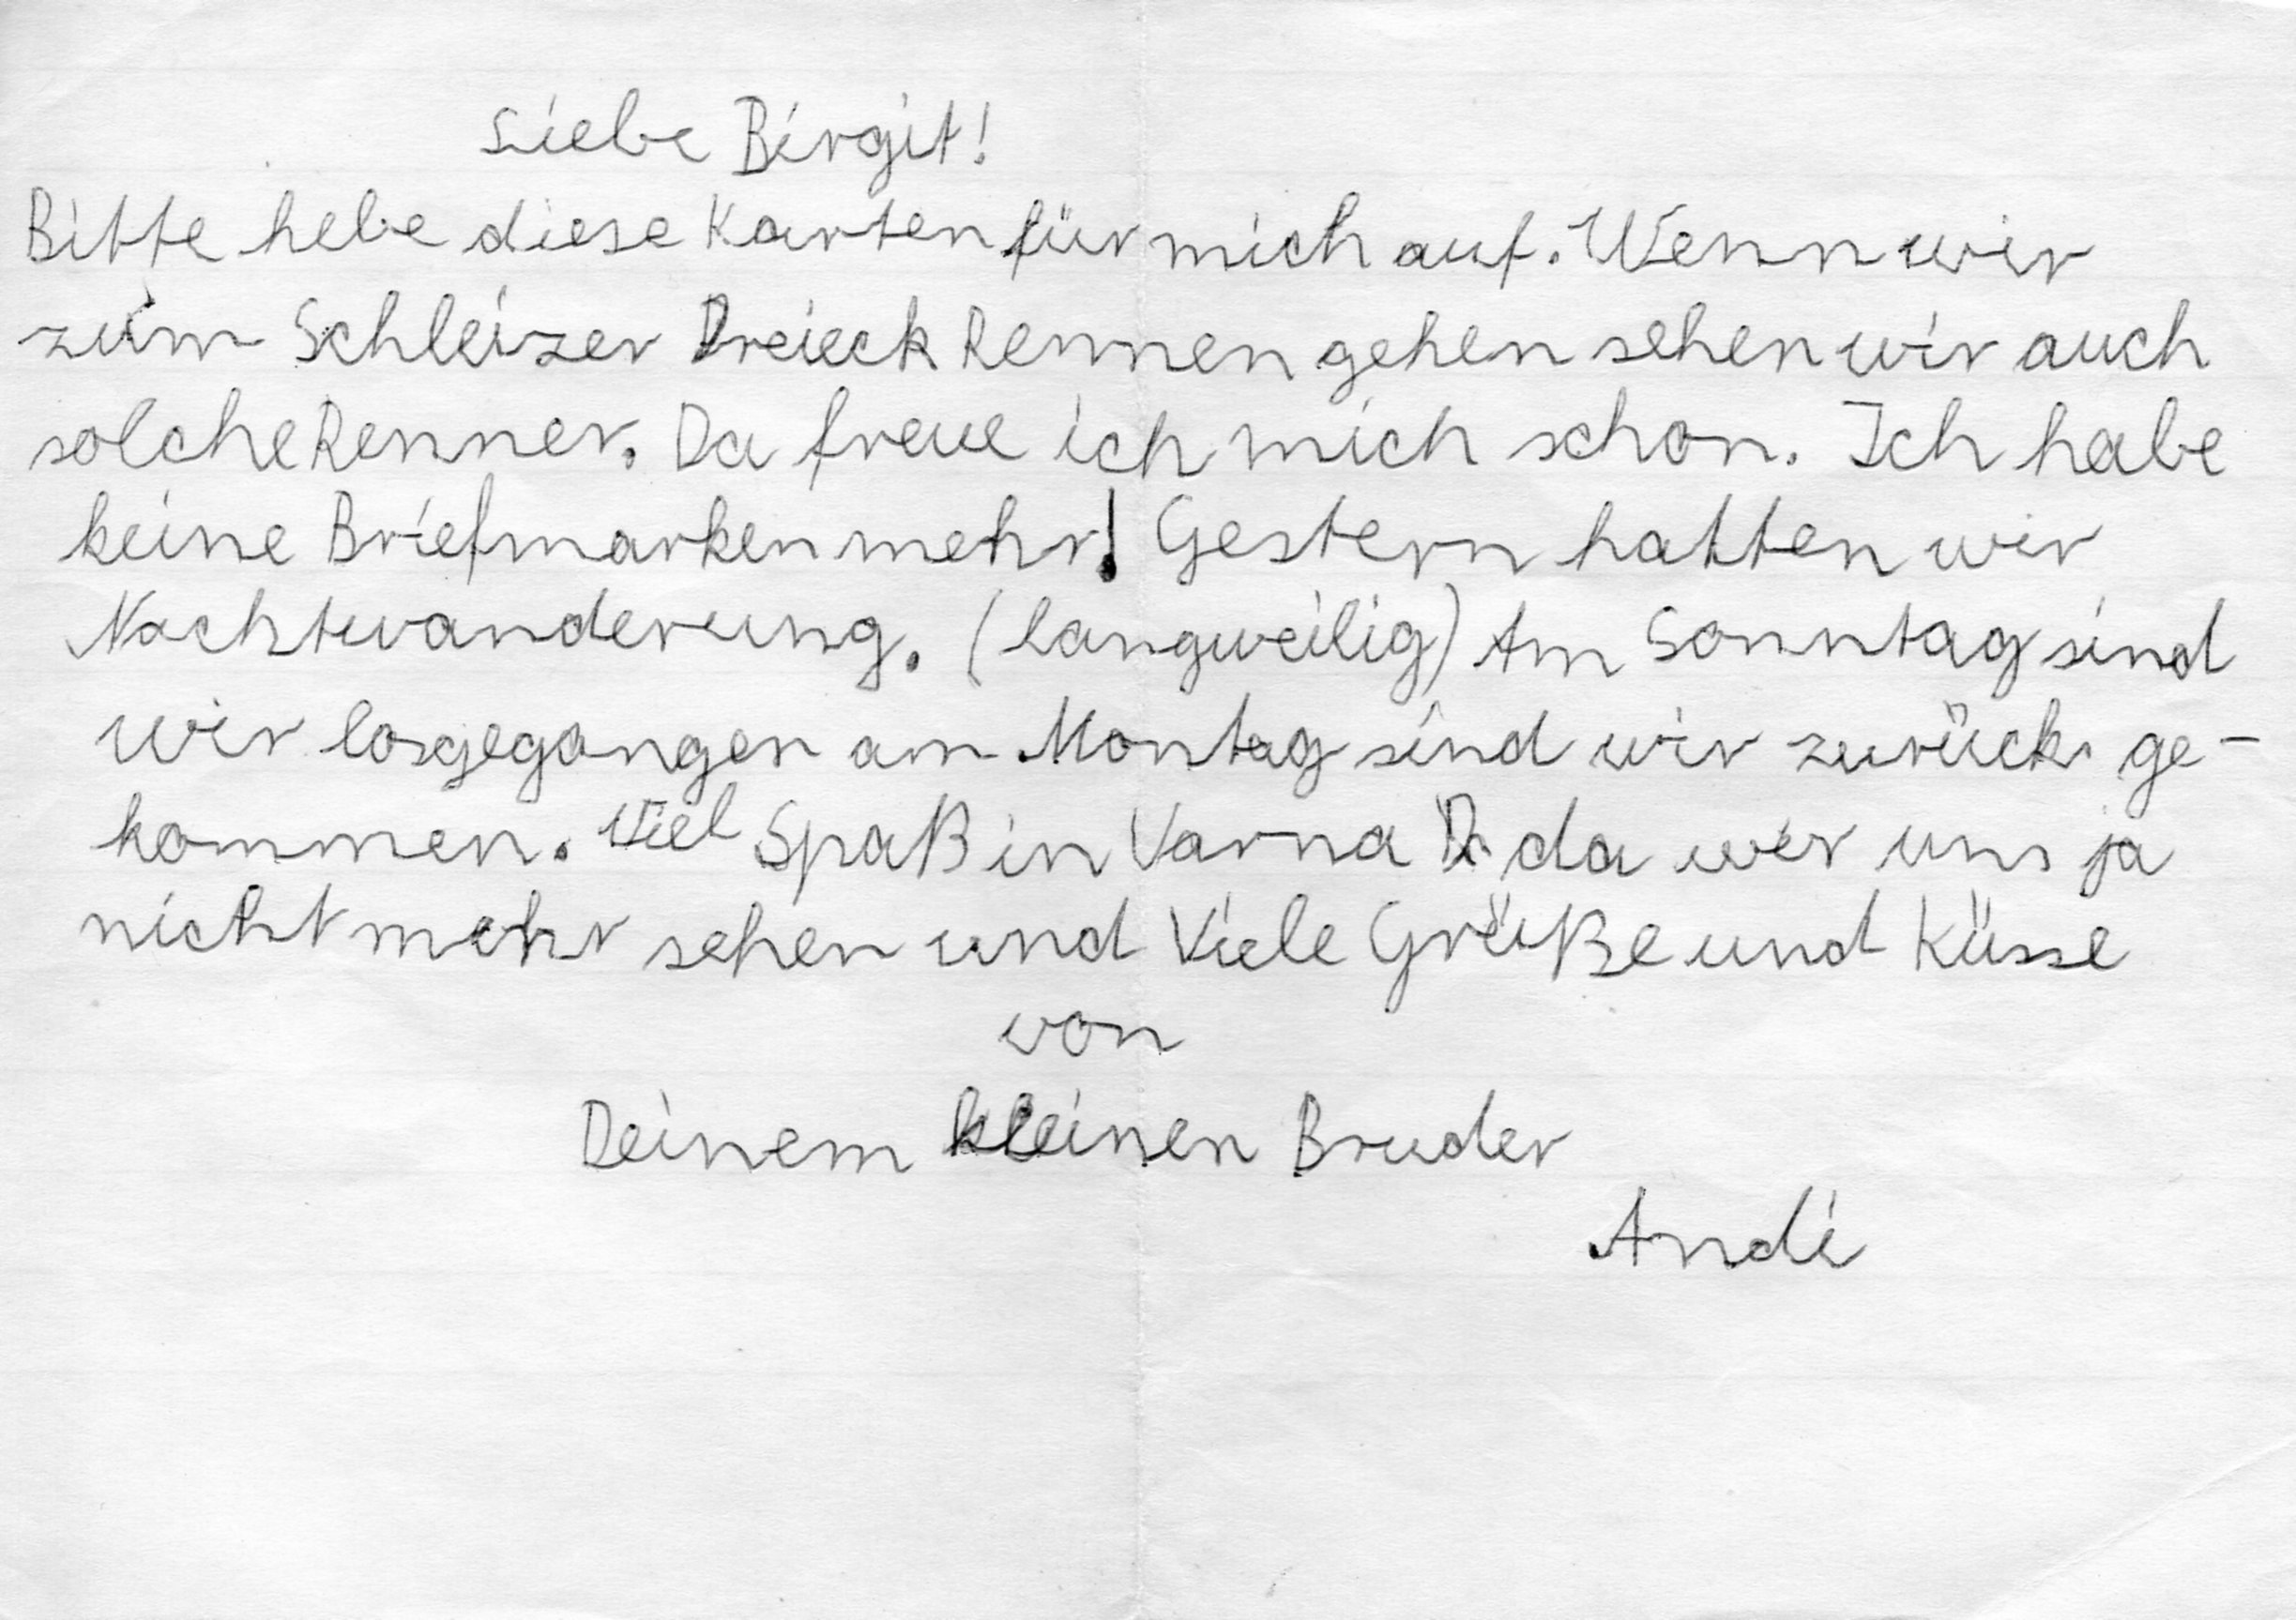 Liebe Birgit!
Bitte hebe diese Karten für mich auf. Wenn wir
zum Schleizer Dreieck Rennen gehen sehen wir auch
solche Renner. Da freue ich mich schon. Ich habe
keine Briefmarken mehr! Gestern hatten wir
Nachtwanderung. (langweilig) Am Sonntag sind
wir losgegangen am Montag sind wir zurück ge-
kommen. Viel Spaß in Varna da wir uns ja
nicht mehr sehen und Viele Grüße und Küsse
von
Deinem kleinen Bruder
Andi